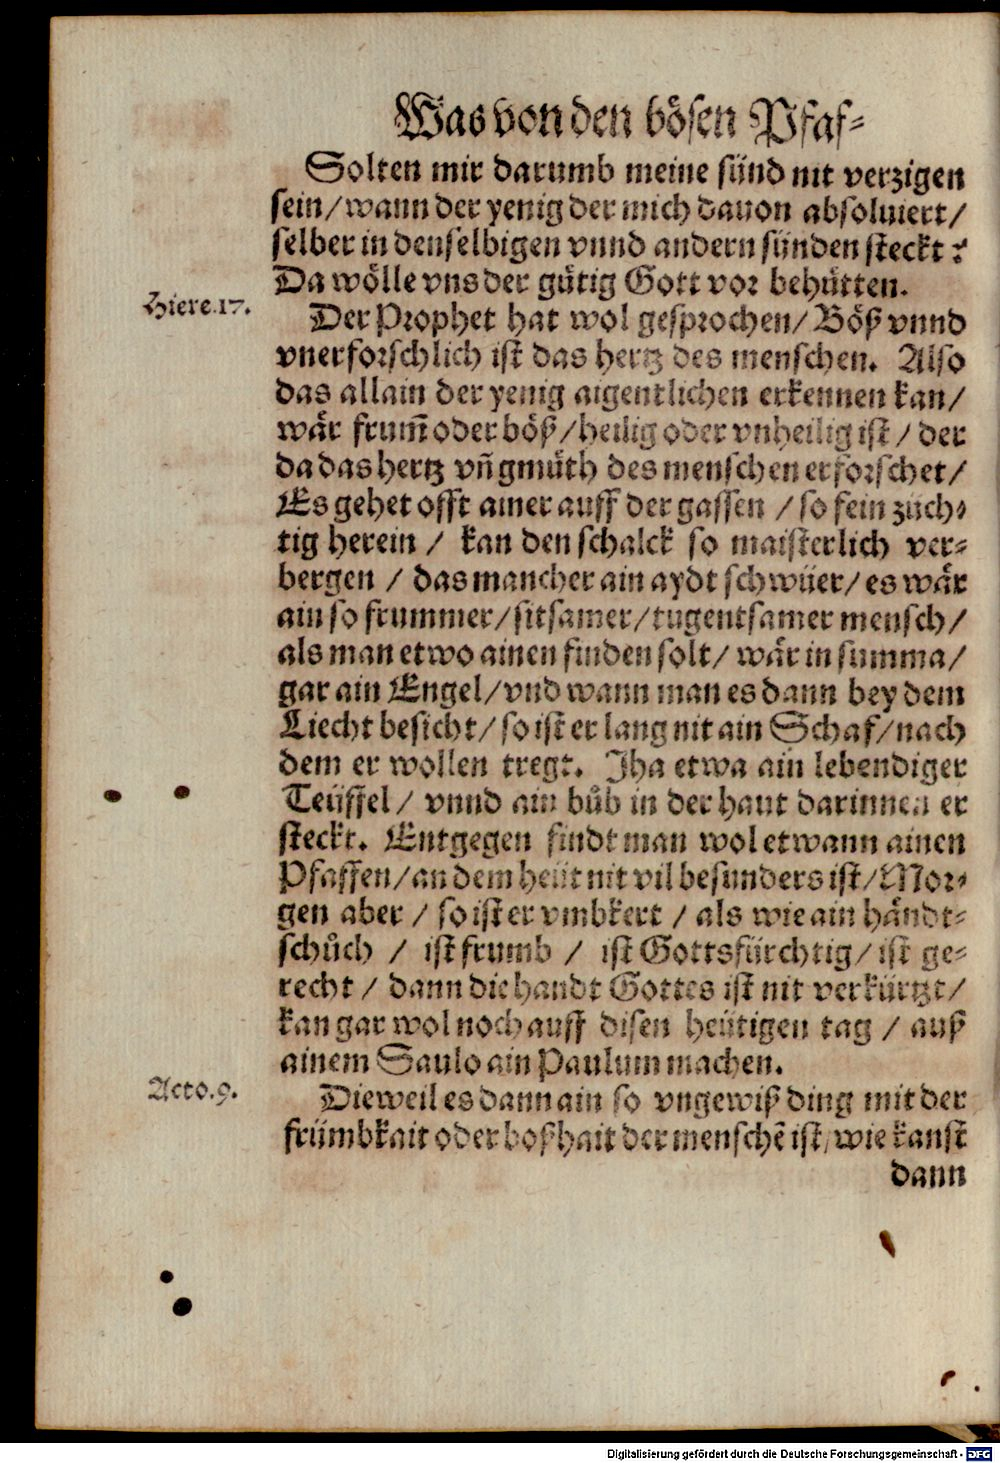 Was von den bösen Pfaf-
Solten mir darumb meine sünd nit verzigen
sein/wann der yenig der mich dauon absoluiert/
selber in denselbigen vnnd andern sünden steckt?
Da wölle vns der gütig Gott vor behütten.
Hiere.17.
Der Prophet hat wol gesprochen/ Böß vnnd
vnerforschlich ist das hertz des menschen. Also
das allain der yenig aigentlichen erkennen kan/
wär frum̄ oder böß/heilig oder vnheilig ist/ der
da das hertz vn̄ gmüth des menschen erforschet/
Es gehet offt ainer auff der gassen / so fein züch-
tig herein / kan den schalck so maisterlich ver-
bergen / das mancher ain aydt schwüer/ es wär
ain so frummer/sitsamer/tugentsamer mensch/
als man etwo ainen finden solt/ wär in summa/
gar ain Engel/vnd wann man es dann bey dem
Liecht besicht/ so ist er lang nit ain Schaf/nach
dem er wollen tregt. Jha etwa ain lebendiger
Teüffel/ vnnd ain bůb in der haut darinnen er
steckt. Entgegen findt man wol etwann ainen
Pfaffen/an dem heüt nit vil besunders ist/Mor-
gen aber / so ist er vmbkert / als wie ain händt-
schůch / ist frumb / ist Gottsfürchtig/ ist ge-
recht / dann die handt Gottes ist nit verkürtzt/
kan gar wol noch auff disen heütigen tag / auß
ainem Saulo ain Paulum machen.
Acto.9.
Dieweil es dann ain so vngewiß ding mit der
frümbkait oder boßhait der menschē ist, wie kanst
dann
Digitalisierung gefördert durch die Deutsche Forschungsgemeinschaft - DFG